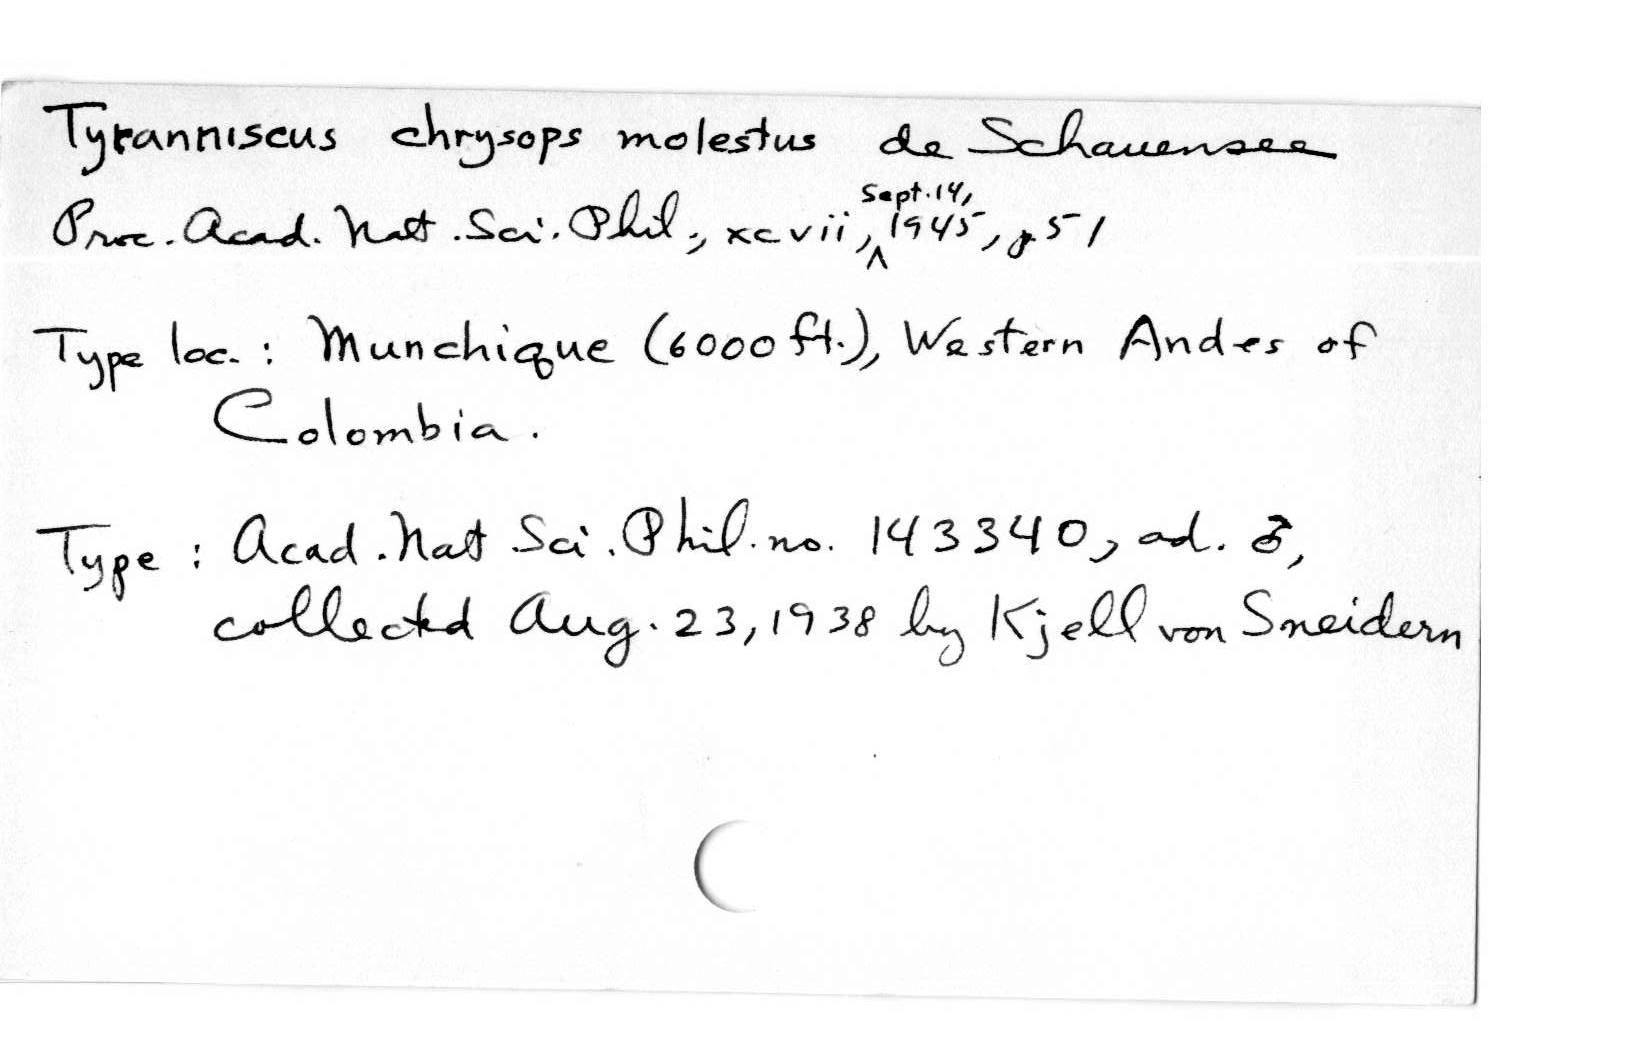 Tyranniscus chrysops molestus de Schauensee
Proc. Acad. Nat. Sci. Phil., xcvii, ^ Sept. 14, 1945, p 51
Type loc. : Munchique (6000 ft.), Western Andes of
Colombia.
Type : Acad. Nat Sci. Phil. no. 143340, ad. ♂,
collected Aug. 23, 1938 by Kjell von Sneidern